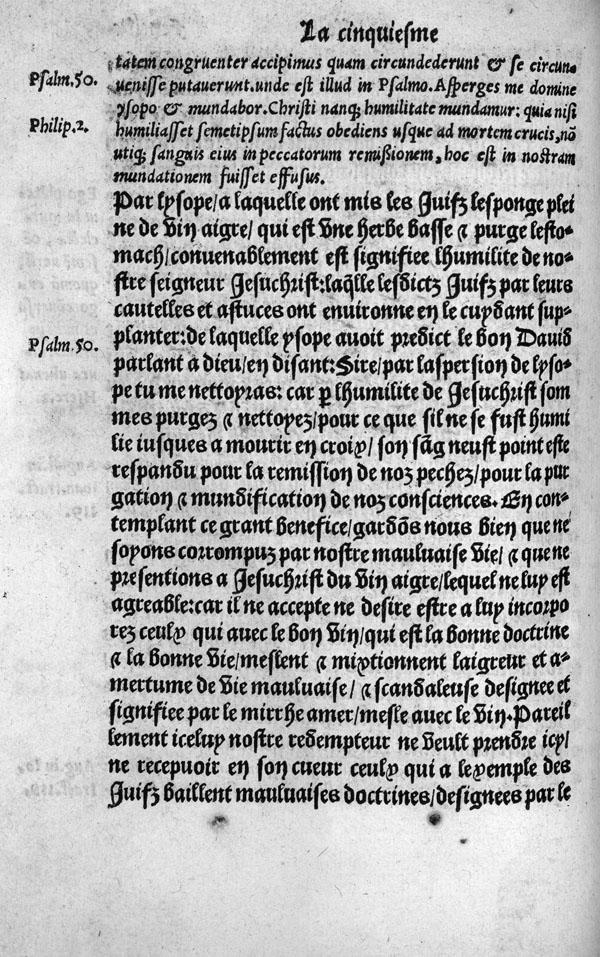 La cinquiesme
tatem congruenter accipimus quam circundederunt & se circun⸗
Psalm.50.
uenisse putauerunt.unde est illud in Psalmo. Asperges me domine
ysopo & mundabor. Christi nanq; humilitate mundamur: quia nisi
Philip.2.
humiliasset semetipsum factus obediens usque ad mortem crucis, nō
utiq; sanguis eius in peccatorum remissionem, hoc est in nostram
mundationem fuisset effusus.
Par lysope/a laquelle ont mis les Juifz lesponge plei
ne de vin aigre/ qui est vne herbe basse & purge lesto⸗
mach/conuenablement est signifiee lhumilite de no⸗
stre seigneur Jesuchrist:laq̄lle lesdictz Juifz par leurs
cautelles et astuces ont enuironne en le cuydant sup⸗
planter:de laquelle ysope auoit predict le bon Dauid
Psalm.50.
parlant a dieu/en disant:Sire/par laspersion de lyso⸗
pe tu me nettoyras: car p̱ lhumilite de Jesuchrist som
mes purgez & nettoyez/pour ce que sil ne se fust humi
lie iusques a mourir en croix/ son sāg neust point este
respandu pour la remission de noz pechez/pour la pur
gation & mundification de noz consciences. En con⸗
templant ce grant benefice/gardōs nous bien que ne
soyons corrompuz par nostre mauluaise vie/ & que ne
presentions a Jesuchrist du vin aigre/lequel ne luy est
agreable:car il ne accepte ne desire estre a luy incorpo
rez ceulx qui auec le bon vin/qui est la bonne doctrine
& la bonne vie/meslent & mixtionnent laigreur et a⸗
mertume de vie mauluaise/ & scandaleuse designee et
signifiee par le mirrhe amer/mesle auec le vin. Pareil
lement iceluy nostre redempteur ne veult prendre icy/
ne recepuoir en son cueur ceulx qui a lexemple des
Juifz baillent mauluaises doctrines/designees par le